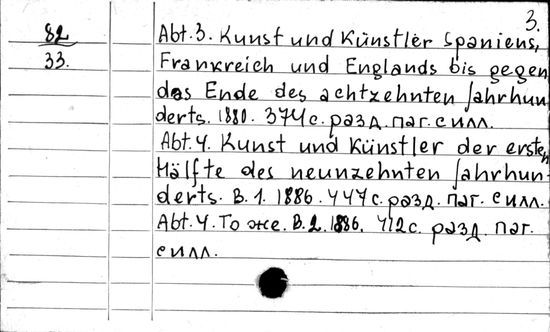 3.
82
33.
Abt. 3. Kunst und Künstler Spaniens,
Frankreich und Englands bis gegen
das Ende des achtzehnten Jahrhun
derts. 1880. 374 с. разд. паг. с илл.
Abt. 4. Kunst und Künstler der ersten
Hälfte des neunzehnten Jahrhun-
derts. B. 1. 1886. 447 с. разд. паг. с илл.
Abt. 4. То же. B. 2. 1886. 412 с. разд. паг.
с илл.